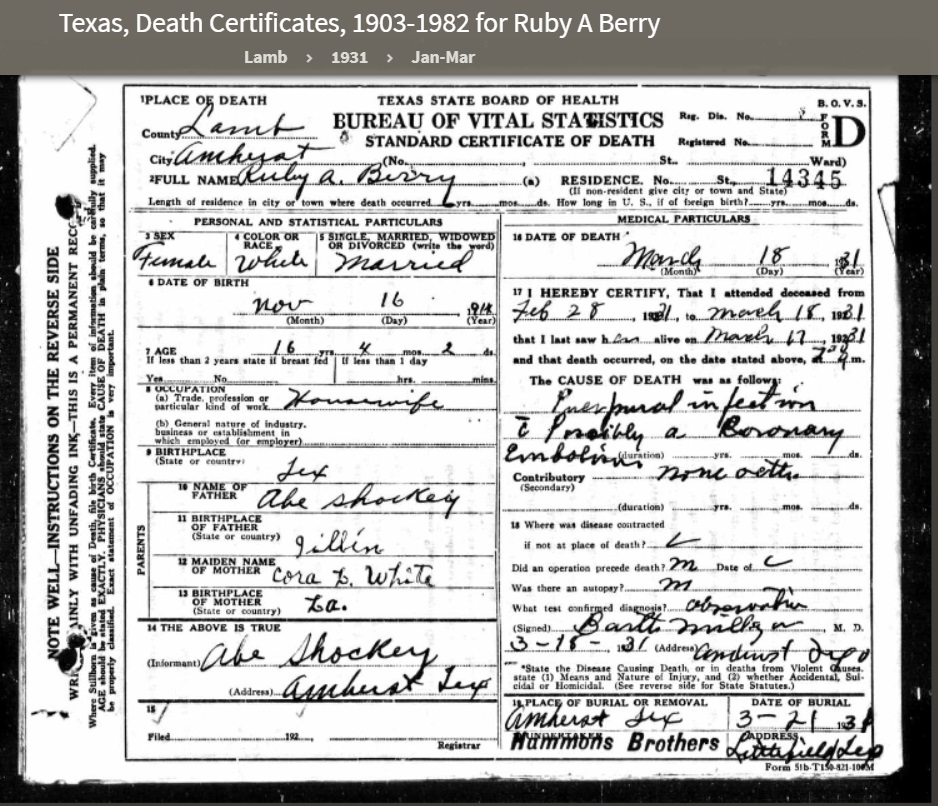 Texas, Death Certificates, 1903-1982 for Ruby A Berry
Lamb › 1931 › Jan-Mar
NOTE WELL—INSTRUCTIONS ON THE REVERSE SIDE
INLY WITH UNFADING INK—THIS IS A PERMANENT
Where Stillborn is given as cause of Death, file birth Certificate. Every item of information should be carefully supplied.
AGE should be stated EXACTLY. PHYSICIANS should state CAUSE OF DEATH in plain terms, so that it may
be properly classified. Exact statement of OCCUPATION is very important.
TEXAS STATE BOARD OF HEALTH
BUREAU OF VITAL STATISTICS
STANDARD CERTIFICATE OF DEATH
B. O. V. S.
FORM D
Reg. Dis. No.
Registered No.
1 PLACE OF DEATH
County Lamb
City Amherst (No. St. Ward)
2 FULL NAME Ruby A. Berry (a) RESIDENCE. No. St. 14345
(If non-resident give city or town and State)
Length of residence in city or town where death occurred 6 yrs. mos. ds. How long in U. S., if of foreign birth? yrs. mos. ds.
PERSONAL AND STATISTICAL PARTICULARS
3 SEX Female
4 COLOR OR RACE White
5 SINGLE, MARRIED, WIDOWED OR DIVORCED (write the word) Married
6 DATE OF BIRTH
Nov 16 1914
(Month) (Day) (Year)
7 AGE 16 yrs. 4 mos. 2 ds.
If less than 2 years state if breast fed If less than 1 day
Yes No hrs. mins.
8 OCCUPATION
(a) Trade, profession or
particular kind of work Housewife
(b) General nature of industry.
business or establishment in
which employed (or employer)
9 BIRTHPLACE
(State or country) Tex
PARENTS
10 NAME OF FATHER Abe Shockey
11 BIRTHPLACE OF FATHER
(State or country)
12 MAIDEN NAME OF MOTHER Cora White
13 BIRTHPLACE OF MOTHER
(State or country) La.
14 THE ABOVE IS TRUE
(Informant) Abe Shockey
(Address) Amherst Tex
15
Filed 192
Registrar
MEDICAL PARTICULARS
16 DATE OF DEATH
March 18 1931
(Month) (Day) (Year)
17 I HEREBY CERTIFY, That I attended deceased from
Feb 28, 1931, to March 18, 1931
that I last saw her alive on March 17 1931
and that death occurred, on the date stated above, at m.
The CAUSE OF DEATH was as follows:
Puerpural infection
c̄ Possibly a Coronary
Embolism (duration) yrs. mos. ds.
Contributory none
(Secondary)
(duration) yrs. mos. ds.
18 Where was disease contracted
if not at place of death?
Did an operation precede death? Date of
Was there an autopsy?
What test confirmed diagnosis? Observation
(Signed) M. D.
3-18- 1931 (Address) Amherst
*State the Disease Causing Death, or in deaths from Violent Causes,
state (1) Means and Nature of Injury, and (2) whether Accidental, Sui-
cidal or Homicidal. (See reverse side for State Statutes.)
19 PLACE OF BURIAL OR REMOVAL
Amherst Tex
DATE OF BURIAL
3-21 1931
UNDERTAKER
Hammons Brothers
ADDRESS
Littlefield Tex
Form 51b-T150-821-100M